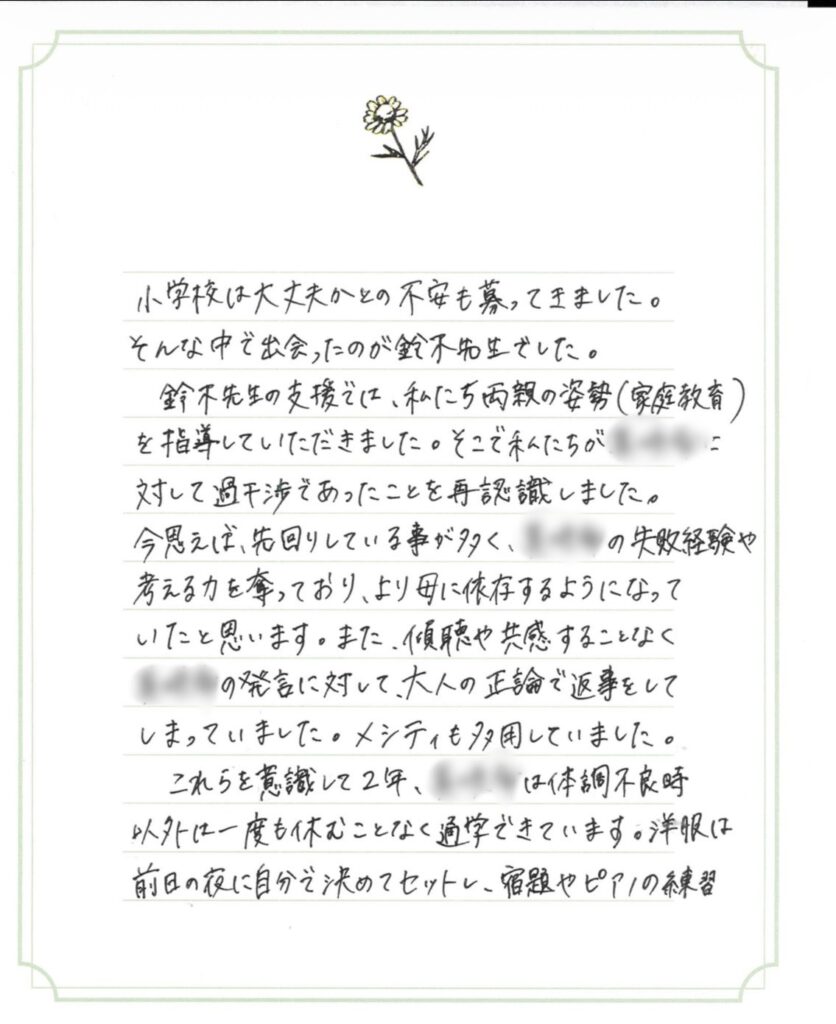 小学校は大丈夫かとの不安も募ってきました。
そんな中で出会ったのが鈴木先生でした。
鈴木先生の支援では、私たち両親の姿勢(家庭教育)
を指導していただきました。そこで私たちが に
対して過干渉であったことを再認識しました。
今思えば、先回りしている事が多く、 の失敗経験や
考える力を奪っており、より母に依存するようになって
いたと思います。また、傾聴や共感することなく
の発言に対して、大人の正論で返事をして
しまっていました。メシティも多用していました。
これらを意識して2年、 は体調不良時
以外は一度も休むことなく通学できています。洋服は
前日の夜に自分で決めてセットし、宿題やピアノの練習